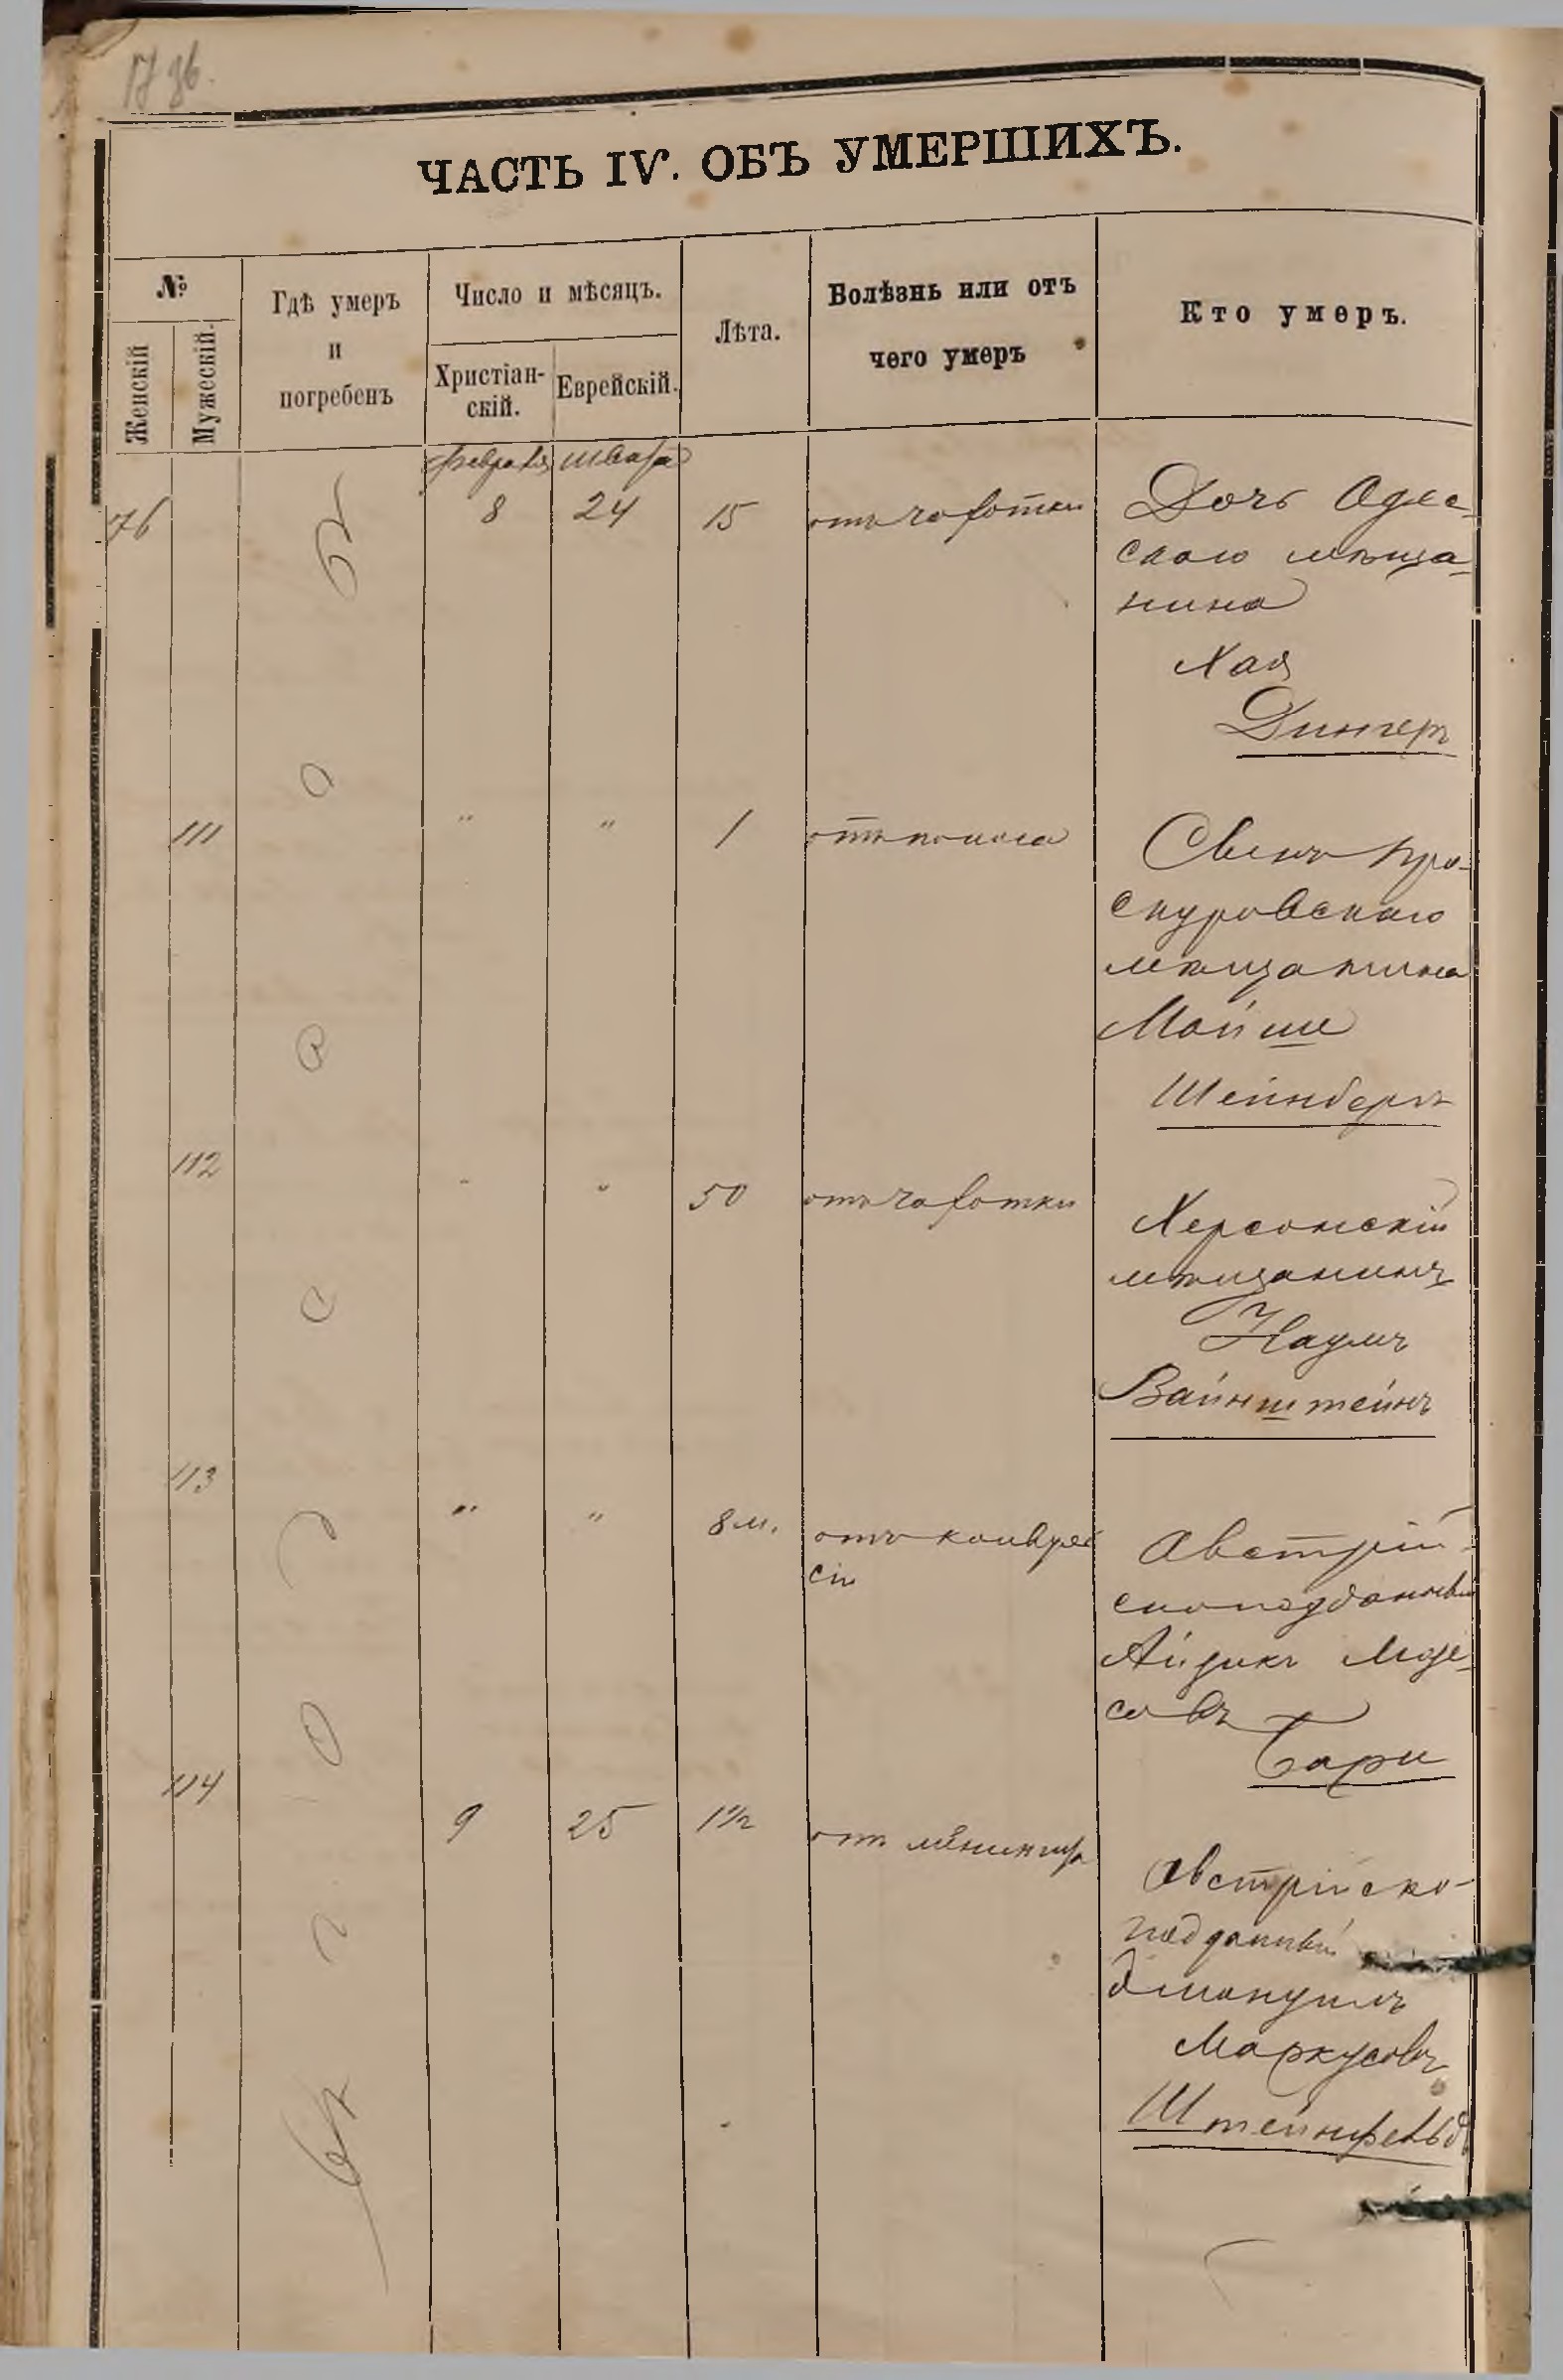 ЧАСТЬ IV. ОБЪ УМЕРШИХЪ.
№
Женскій
Мужескій.
Гдѣ умеръ
и
погребенъ
Число и мѣсяцъ.
Христіан-
скій.
Еврейскій.
Лѣта.
Болѣзнь или отъ
чего умеръ
Кто умеръ.
февраля швата
76 8 24 15 отъ чахотки
Дочь Одес-
скаго мѣща-
нина
Хая
Дингеръ
111 " " 1 отъ поноса
Сынъ Про-
скуровскаго
мѣщанина
Мойше
Шейнбергъ
112 " " 50 отъ чахотки
Херсонскій
мѣщанинъ
Наумъ
Вайнштейнъ
113 " " 8 м. отъ конвуль
сіи
Австрій-
скоподданный
Айзикъ Мозе-
совъ
Бари
114 9 25 1½ отъ менингита
Австрійско-
подданный
Эмануилъ
Маркусовъ
Штейнфельдъ
въ Одессѣ